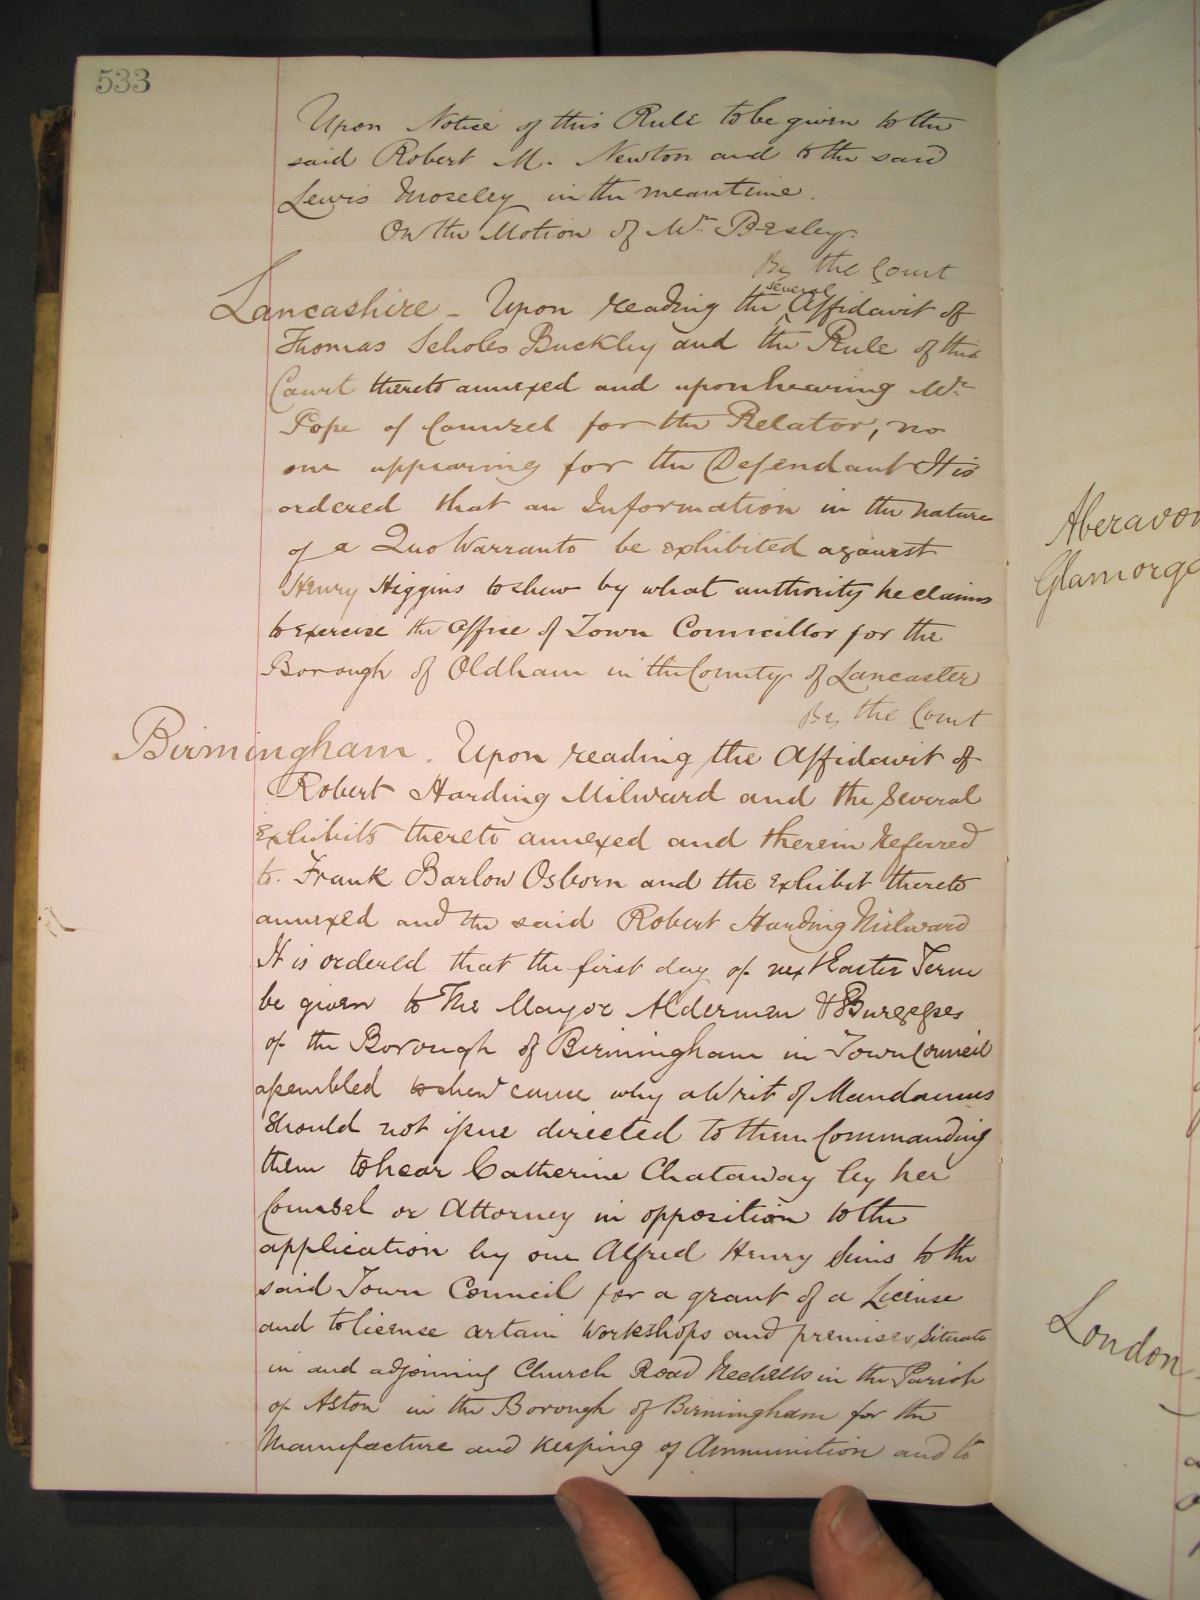 533
Upon Notice of this Rule to be given to the
said Robert M. Newton and to the said
Lewis Moseley in the meantime.
On the Motion of Mr. Besley.
By the Court
Lancashire - Upon reading the several Affidavit of
Thomas Scholes Buckley and the Rule of this
Court thereto annexed and upon hearing Mr.
Pope of Counsel for the Relator, no
one appearing for the Defendant It is
ordered that an Information in the nature
of a Quo Warranto be exhibited against
Henry Higgins to shew by what authority he claims
to exercise the Office of Town Councillor for the
Borough of Oldham in the County of Lancaster
By the Court
Birmingham. Upon reading the Affidavit of
Robert Harding Milward and the Several
Exhibits thereto annexed and therein Referred
to. Frank Barlow Osborn and the Exhibit thereto
annexed and the said Robert Harding Milward
It is ordered that the first day of next Easter Term
be given to The Mayor Alderman & Burgesses
of the Borough of Birmingham in Town Council
assembled to shew cause why a Writ of Mandamus
Should not issue directed to them Commanding
them to hear Catherine Chataway by her
Counsel or Attorney in opposition to the
application by one Alfred Henry Sims to the
said Town Council for a grant of a License
and to license certain Workshops and premises situate
in and adjoining Church Road Nechells in the Parish
of Aston in the Borough of Birmingham for the
Manufacture and Keeping of Ammunition and to
Aberavon
Glamorga
London